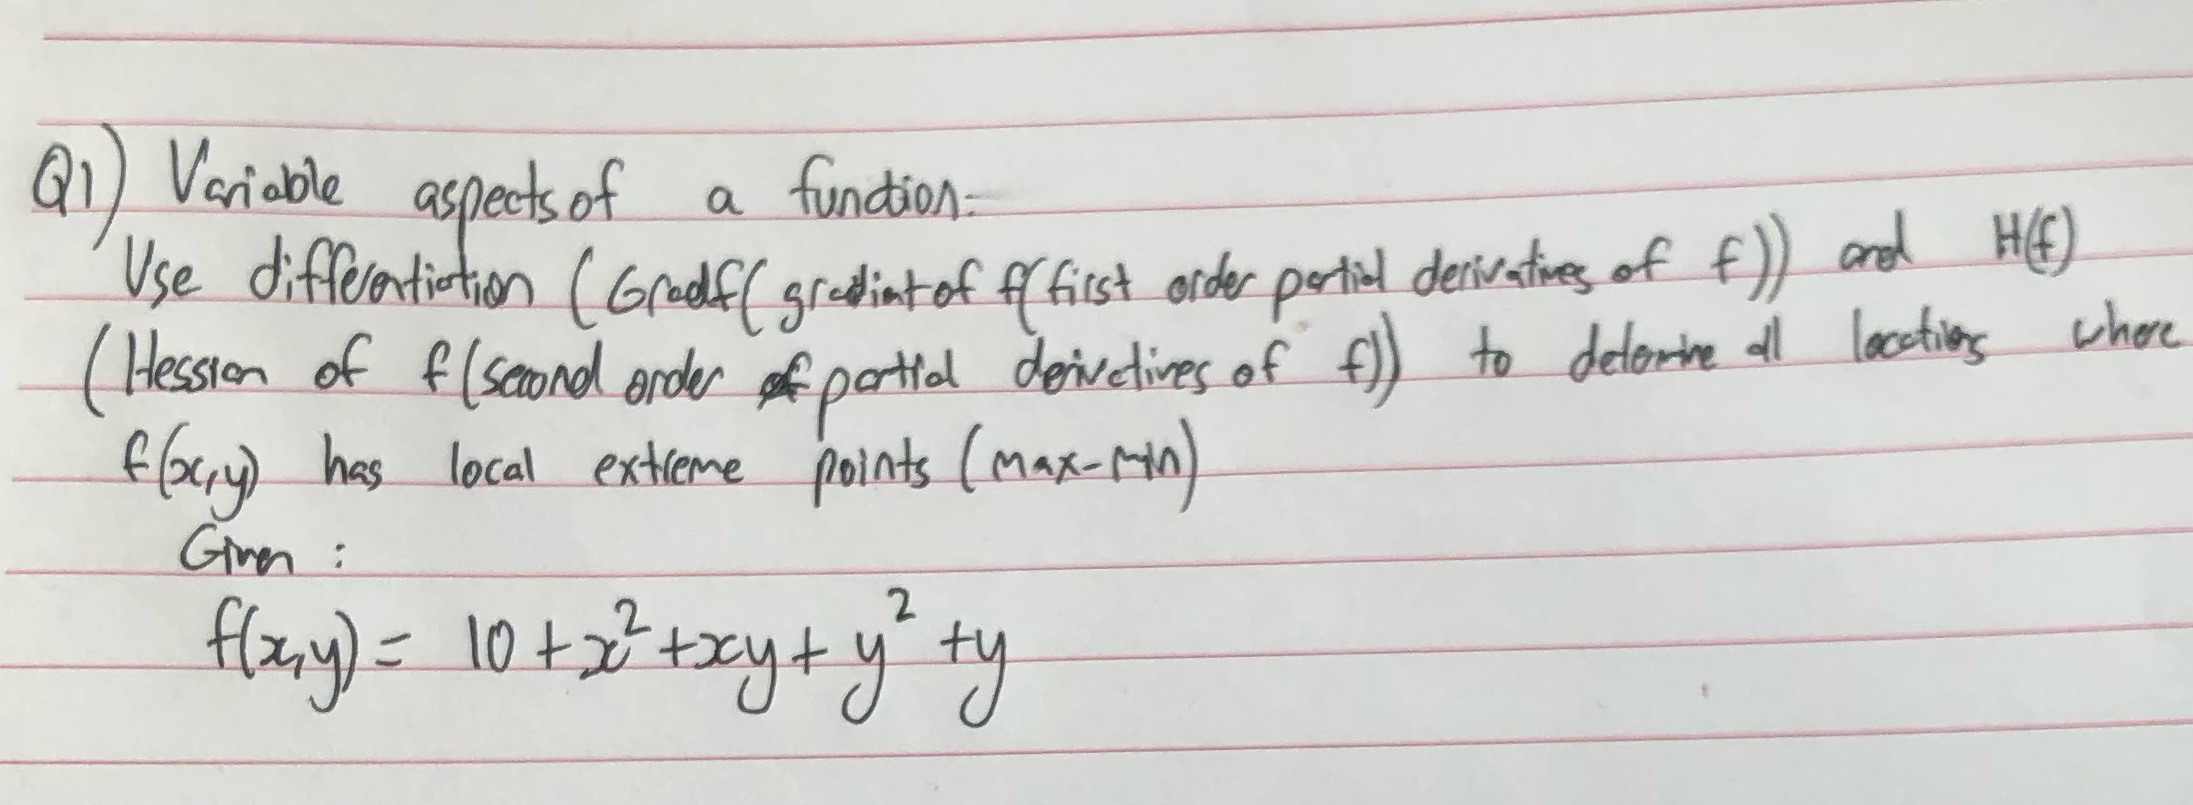 Q1) Variable aspects of a function:-
Use differentiation (Gradf( gradint of f( first order partial derivatives of f)) and H(f)
(Hession of f (second order of partial derivatives of f)) to determine all locations where
f(x,y) has local extreme points (max-min)
Given :
f(x,y) = 10 + x² + xy + y² + y